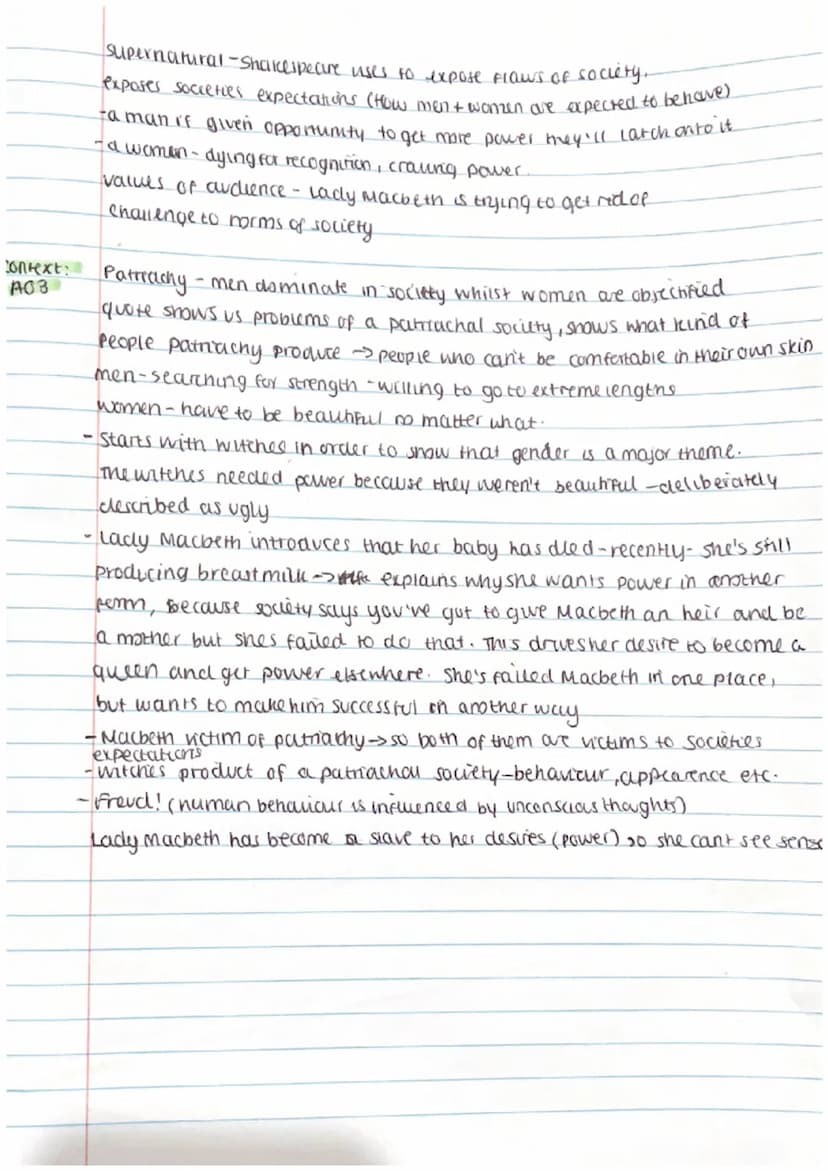 supernatural - Shakespeare uses to expose flaws of society.
exposes societies expectations (How men + women are expected to behave)
- a man if given opportunity to get more power they'll latch onto it
- a women - dying for recognition, craving power.
values of audience - Lady Macbeth is trying to get rid of
challenge to norms of society
context:
AO3
Patriachy - men dominate in society whilst women are objectified
quote shows us problems of a patriachal society, shows what kind of
people patriachy produce → people who can't be comfortable in their own skin
men - searching for strength - willing to go to extreme lengths
women - have to be beautiful no matter what.
- Starts with witches in order to show that gender is a major theme.
The witches needed power because they weren't beautiful - deliberately
described as ugly
- Lady Macbeth introduces that her baby has died - recently - she's still
producing breastmilk → explains why she wants power in another
form, because society says you've got to give Macbeth an heir and be
a mother but shes failed to do that. This drives her desire to become a
queen and get power elsewhere. She's failed Macbeth in one place,
but wants to make him successful in another way
- Macbeth victim of patriachy → so both of them are victims to societies
expectations
- witches product of a patriachal society - behaviour, appearence etc.
- Freud! (human behaviour is influenced by unconscious thoughts)
Lady Macbeth has become a slave to her desires (power) so she cant see sense